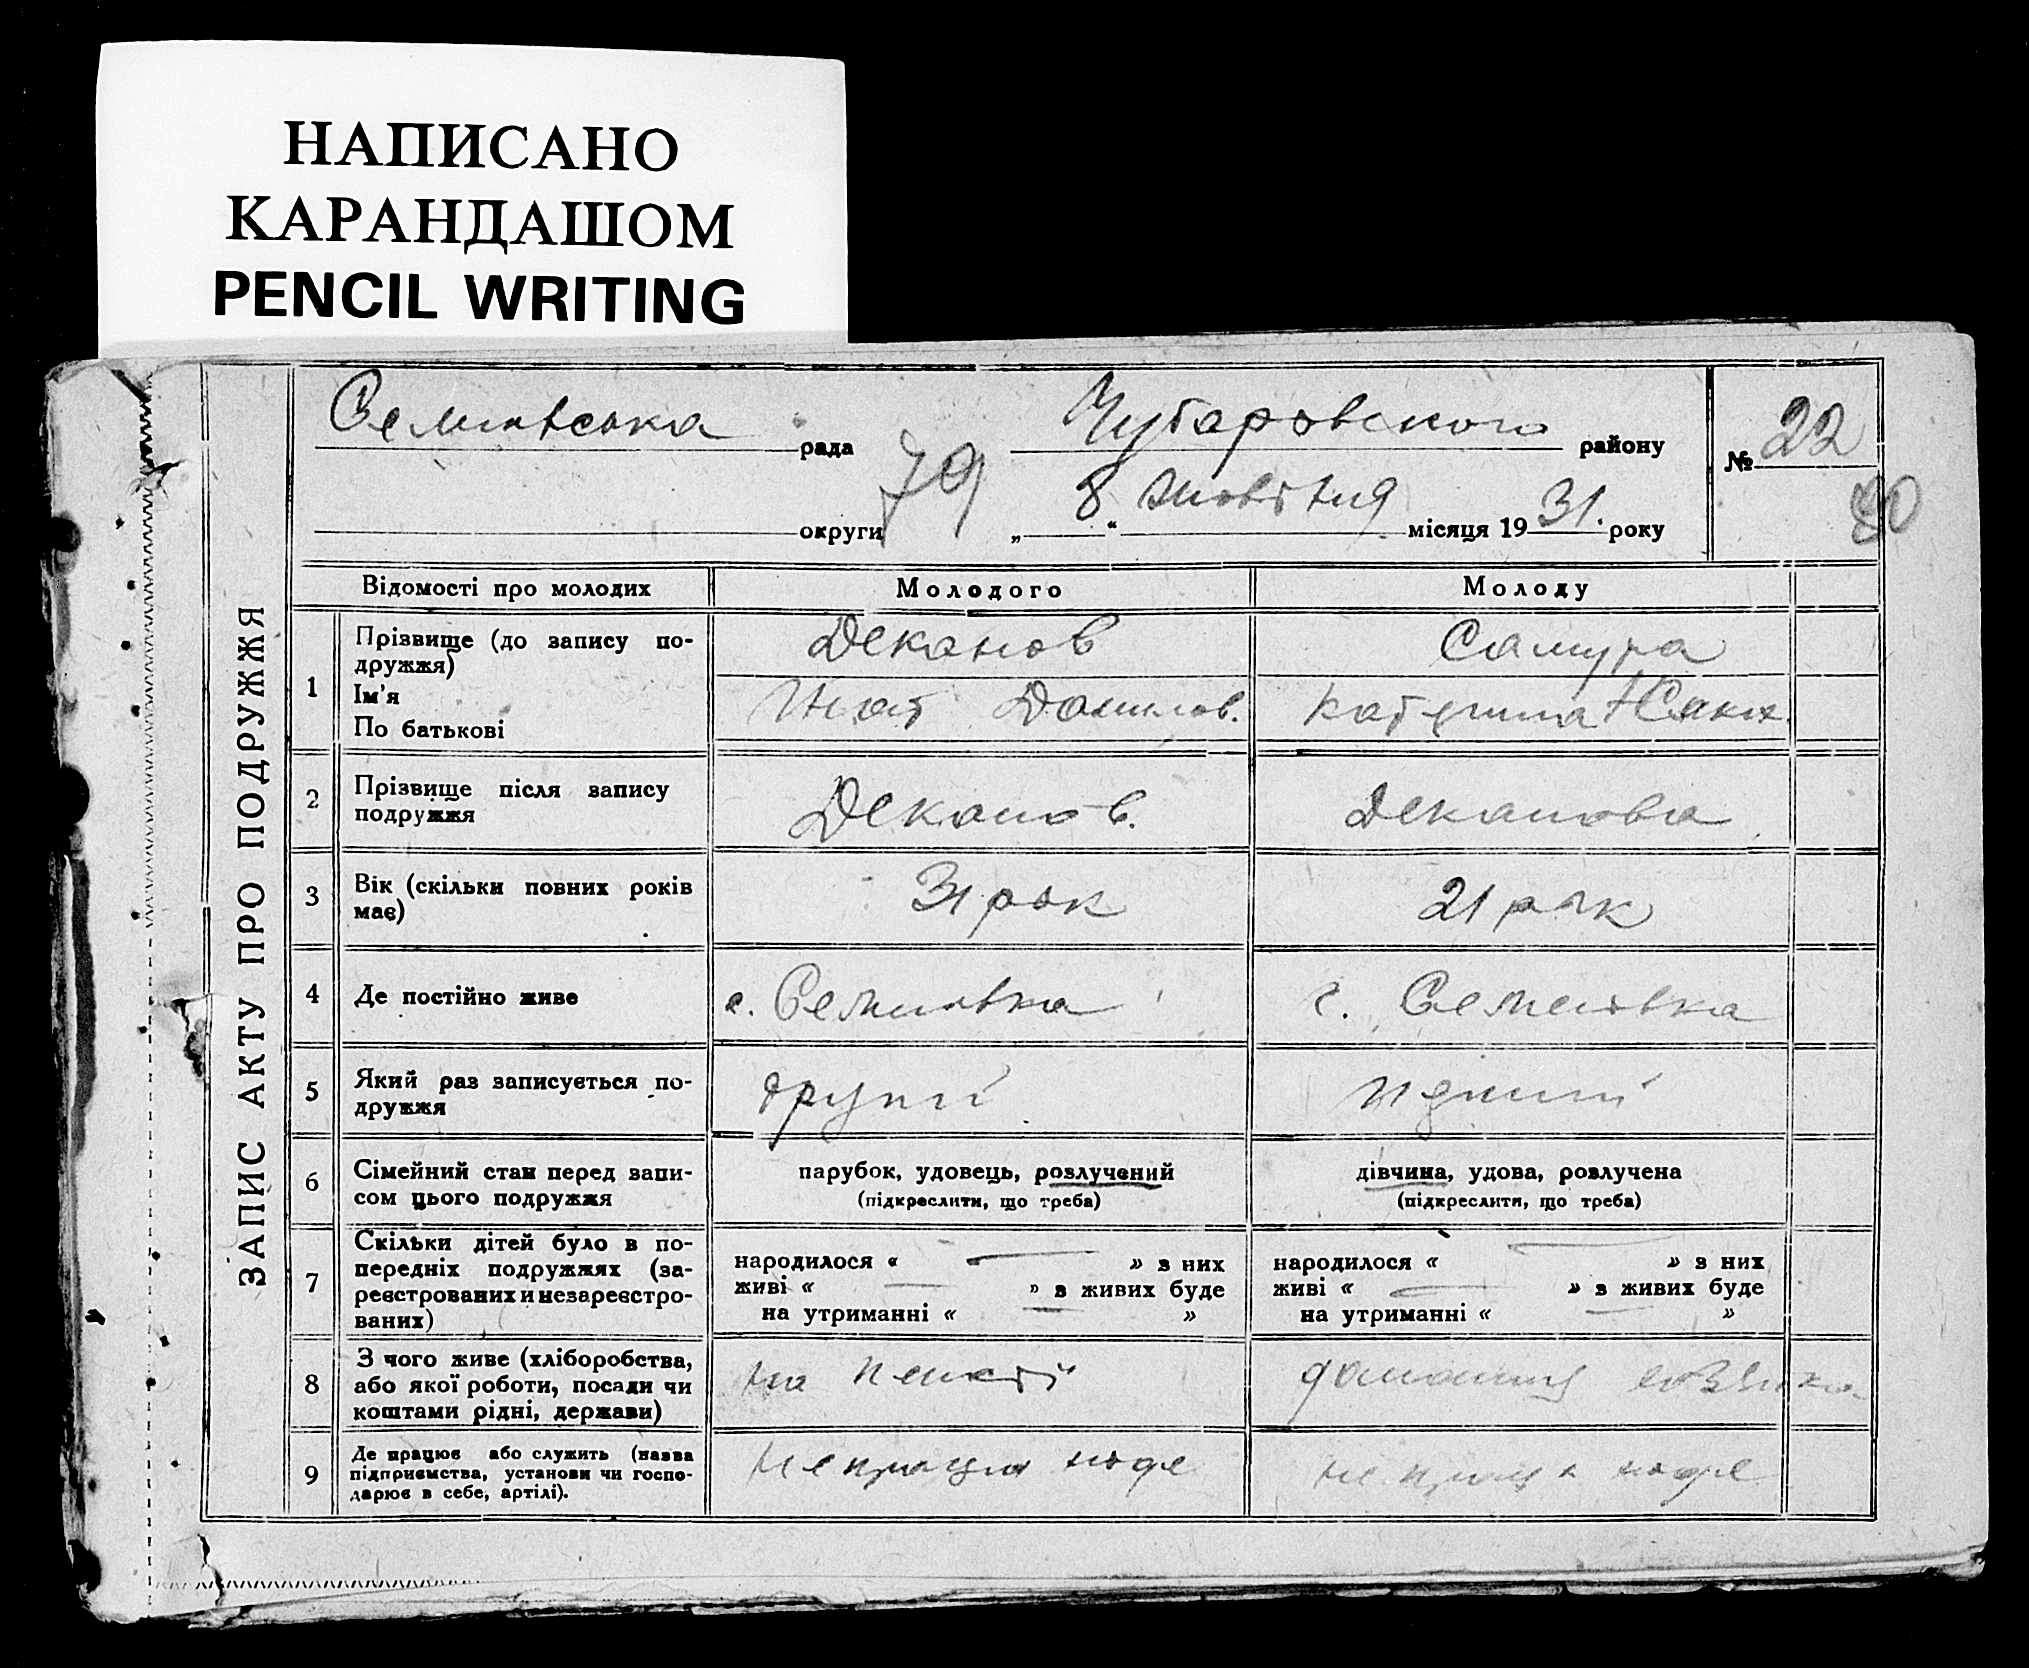 НАПИСАНО
КАРАНДАШОМ
PENCIL WRITING
ЗАПИС АКТУ ПРО ПОДРУЖЖЯ
рада
Чубаровского району
№ 22
79
округи
„ 8 “ жовтня місяця 1931. року
Відомості про молодих Молодого Молоду
1 Прізвище (до запису по-
дружжя)
Ім'я
По батькові
Деканов
Данилов.
Самура
Катерина
2 Прізвище після запису
подружжя
Деканов.
Деканова
3 Вік (скільки повних років
має)
31 рок
21 рік
4 Де постійно живе
с. Семиовка
с. Семеновка
5 Який раз записується по-
дружжя
другий
6 Сімейний стан перед запи-
сом цього подружжя
парубок, удовець, розлучений
(підкреслити, що треба)
дівчина, удова, розлучена
(підкреслити, що треба)
7 Скільки дітей було в по-
передніх подружжях (за-
реєстрованих и незареєстро-
ваних)
народилося « — » з них
живі « — » з живих буде
на утриманні « — »
народилося « — » з них
живі « — » з живих буде
на утриманні « — »
8 З чого живе (хліборобства,
або якої роботи, посади чи
коштами рідні, держави)
на пенсії
домашня
9 Де працює або служить (назва
підприємства, установи чи госпо-
дарює в себе, артілі).